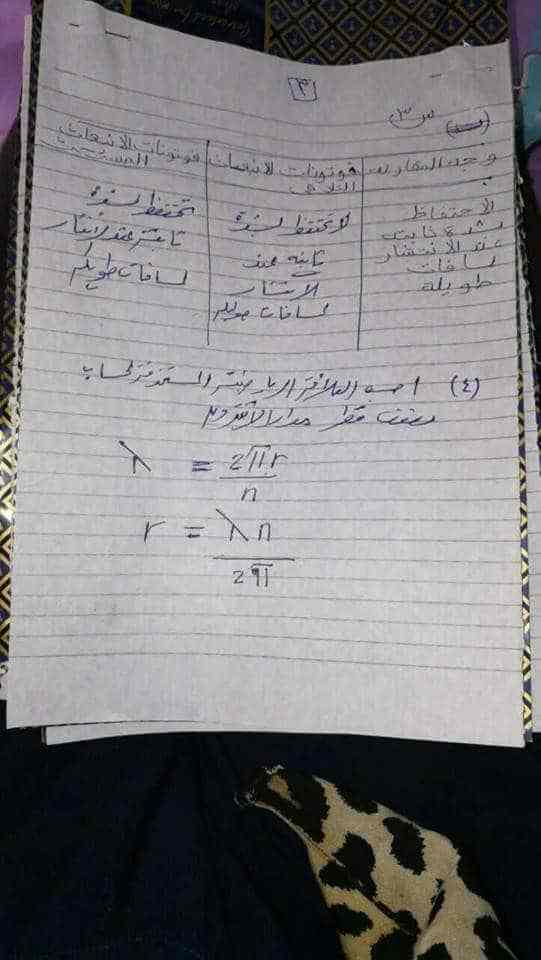 ٣
س٣ (ب)
وجه المقارنة | فوتونات الانبعاث التلقائي | فوتونات الانبعاث
الاحتفاظ بشدة ثابتة عند الانتشار لمسافات طويلة | لا تحتفظ بشدة ثابتة عند الانتشار لمسافات طويلة | تحتفظ بشدة ثابتة عند الانتشار لمسافات طويلة
(٤)
نصف قطر مدار الالكترون
λ = 2πr / n
r = λn / 2π